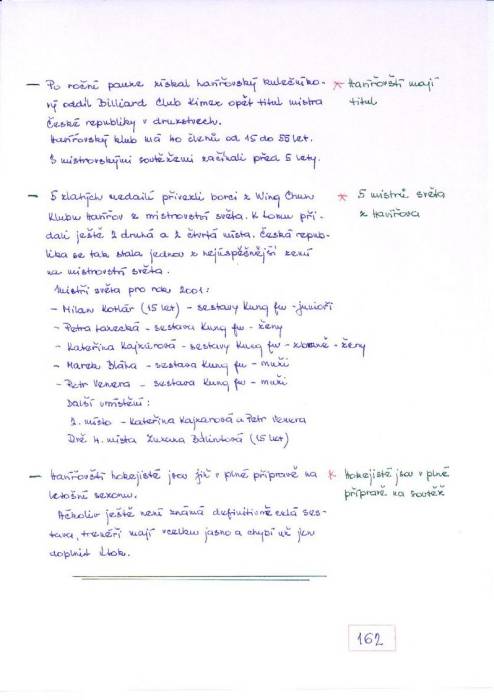 — Po roční pauze získal havířovský kulečníko-
vý oddíl Billiard Club Kimex opět titul mistra
České republiky v družstvech.
Havířovský klub má 40 členů od 15 do 55 let.
S mistrovskými soutěžemi začínali před 5 lety.
* Havířovští mají
titul
— 5 zlatých medailí přivezli borci z Wing Chun
Klubu Havířov z mistrovství světa. K tomu při-
dali ještě 2 druhá a 2 čtvrtá místa. Česká repub-
lika se tak stala jednou z nejúspěšnější zemí
na mistrovství světa.
* 5 mistrů světa
z Havířova
Mistři světa pro rok 2001:
– Milan Kotlár (15 let) – sestavy Kung fu – junioři
– Petra – sestava Kung fu – ženy
– Kateřina Kajzarová – sestavy Kung fu – zbraně – ženy
– Marek Bláha – sestava Kung fu – muži
– Petr Venera – sestava Kung fu – muži
Další umístění:
2. místo – Kateřina Kajzarová a Petr Venera
Dvě 4. místa Zuzana Bálintová (15 let)
— Havířovští hokejisté jsou již v plné přípravě na
letošní sezonu.
Ačkoliv ještě není známá definitivně celá ses-
tava, trenéři mají vcelku jasno a chybí už jen
doplnit útok.
* Hokejisté jsou v plné
přípravě na soutěž
162